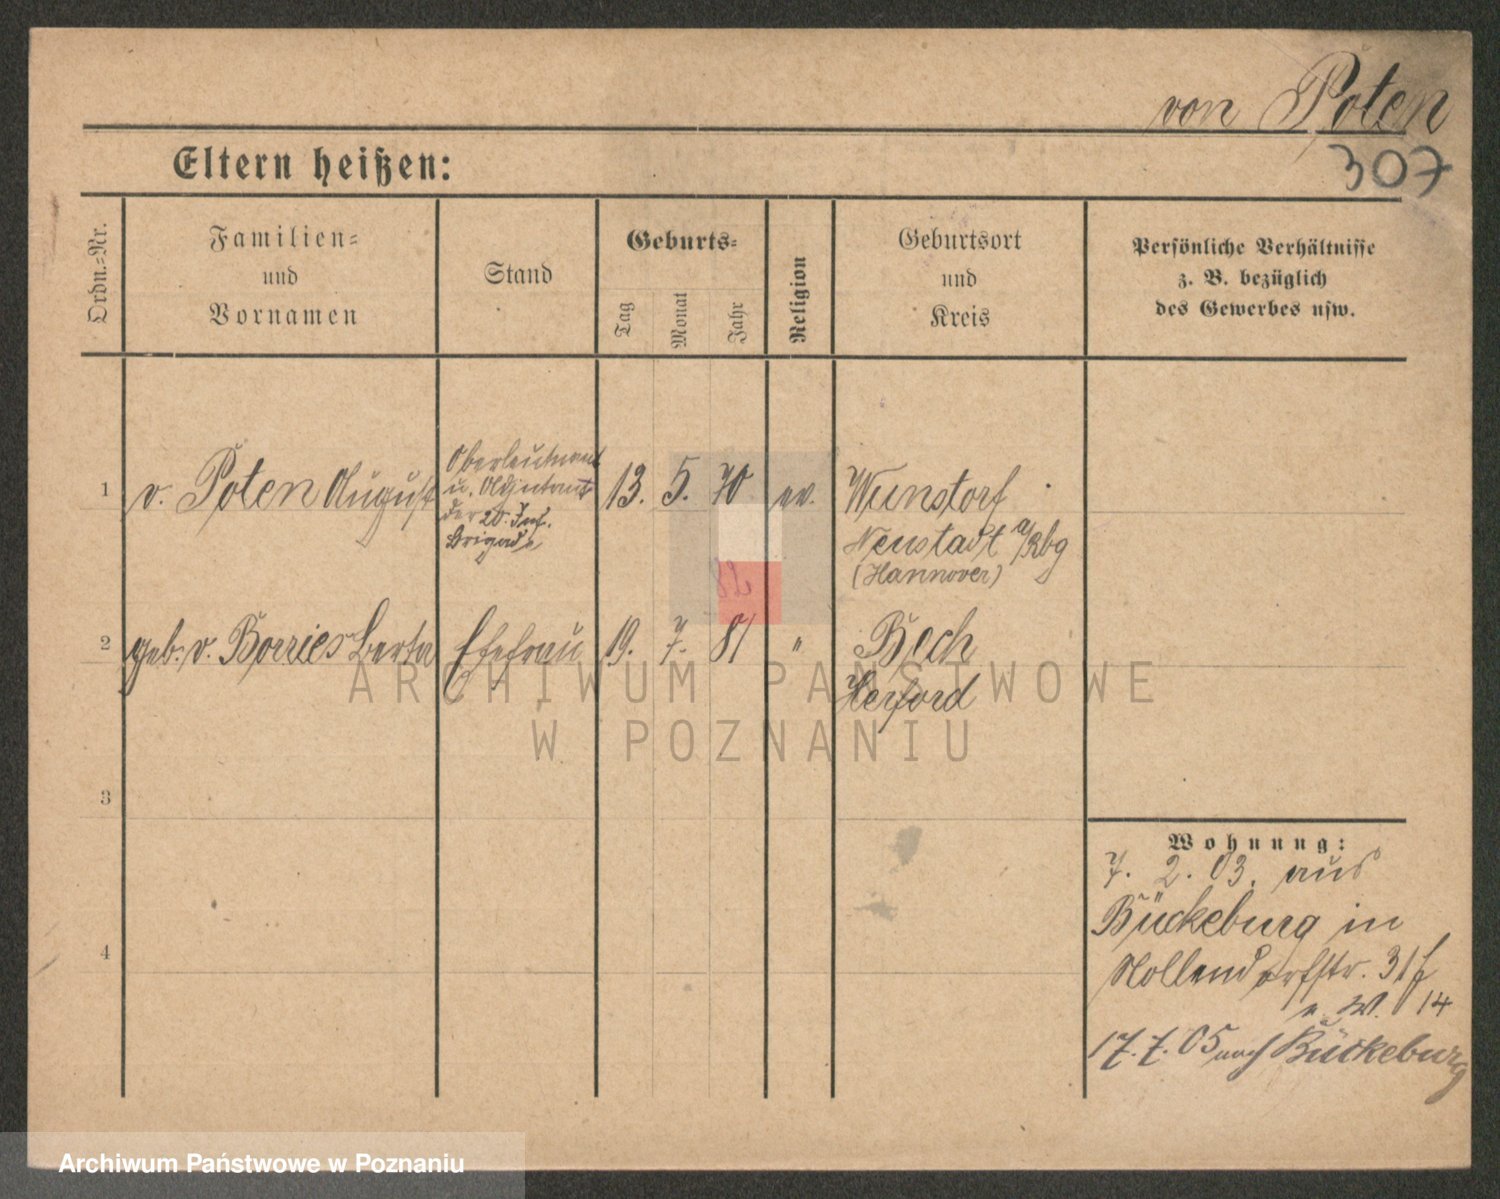 von Poten
Eltern heißen:
307
Ordn.-Nr.
Familien-
und
Vornamen
Stand
Geburts-
Tag
Monat
Jahr
Religion
Geburtsort
und
Kreis
Persönliche Verhältnisse
z. B. bezüglich
des Gewerbes usw.
1
v. Poten August
Oberleutnant
u. Adjutant
der 20. Inf.
Brigade
13. 5. 70
ev.
Wunstorf
Neustadt a/Rbg
(Hannover)
2
geb. v. Borries Berta
Ehefrau
19. 7. 81
"
Bech
Herford
ARCHIWUM PAŃSTWOWE
W POZNANIU
3
4
Wohnung:
7. 2. 03. aus
Bückeburg in
Nollendorfstr. 31
W. 14
17. 7. 05 nach Bückeburg
Archiwum Państwowe w Poznaniu